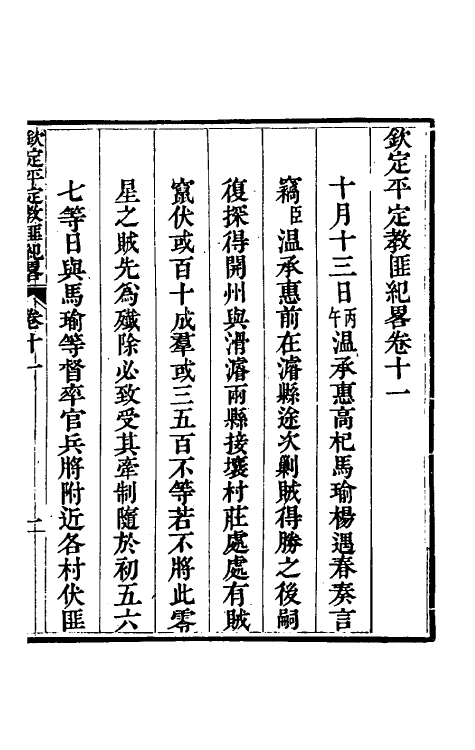 欽定平定教匪紀畧卷十一
十月十三日丙午温承惠高杞馬瑜楊遇春奏言
竊臣温承惠前在濬縣途次剿賊得勝之後嗣
復探得開州與滑濬兩縣接壤村莊處處有賊
竄伏或百十成羣或三五百不等若不將此零
星之賊先為殲除必致受其牽制隨於初五六
七等日與馬瑜等督率官兵將附近各村伏匪
欽定平定教匪紀畧
卷十一
一